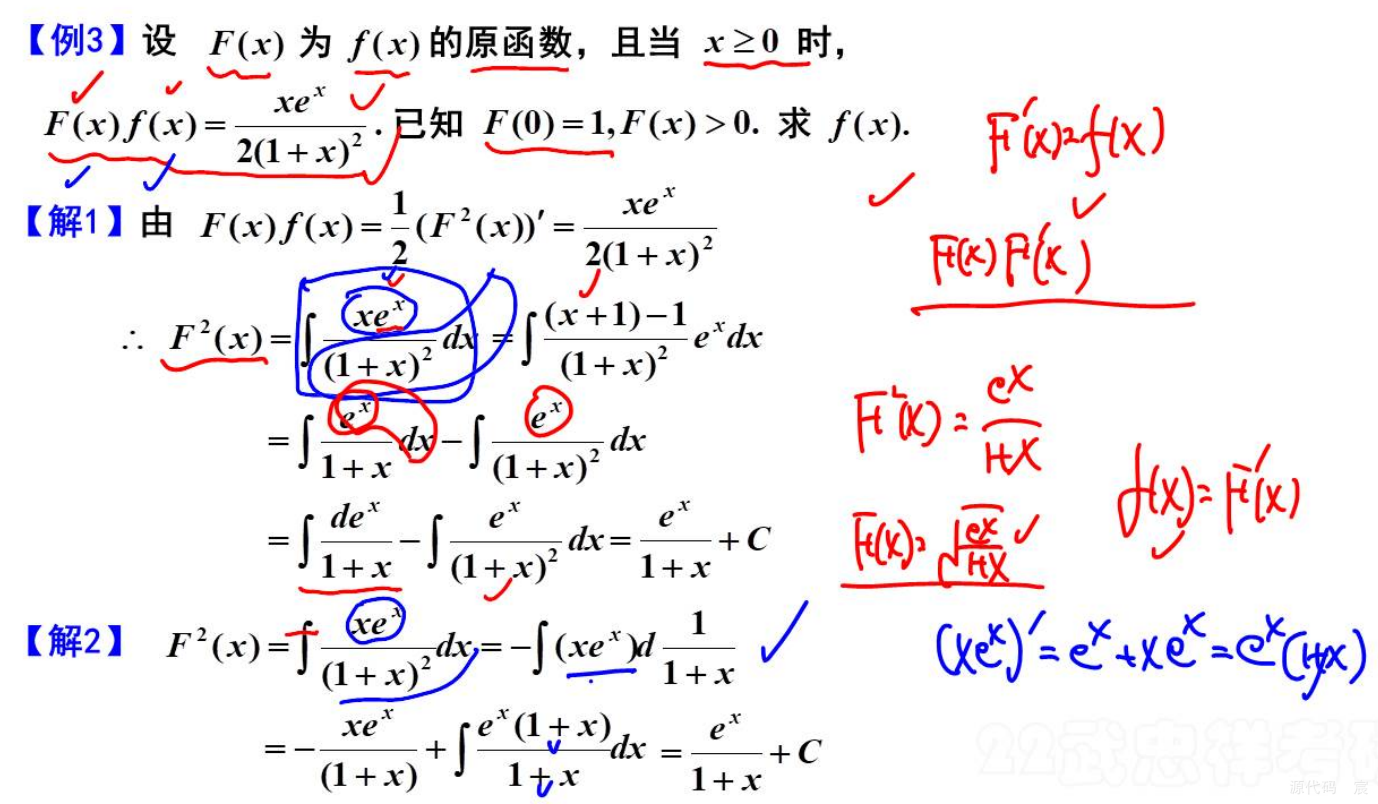 【例3】设 F(x) 为 f(x) 的原函数，且当 x ≥ 0 时，
F(x)f(x) = \frac{xe^x}{2(1+x)^2} . 已知 F(0) = 1, F(x) > 0. 求 f(x).
F'(x) = f(x)
【解1】由 F(x)f(x) = \frac{1}{2}(F^2(x))' = \frac{xe^x}{2(1+x)^2}
F(x)F'(x)
∴ F^2(x) = ∫\frac{xe^x}{(1+x)^2}dx = ∫\frac{(x+1)-1}{(1+x)^2}e^x dx
= ∫\frac{e^x}{1+x}dx - ∫\frac{e^x}{(1+x)^2}dx
F^2(x) = \frac{e^x}{1+x}
= ∫\frac{de^x}{1+x} - ∫\frac{e^x}{(1+x)^2}dx = \frac{e^x}{1+x} + C
F(x) = \sqrt{\frac{e^x}{1+x}}
f(x) = F'(x)
【解2】 F^2(x) = ∫\frac{xe^x}{(1+x)^2}dx = -∫(xe^x)d\frac{1}{1+x}
(xe^x)' = e^x + xe^x = e^x(1+x)
= -\frac{xe^x}{(1+x)} + ∫\frac{e^x(1+x)}{1+x}dx = \frac{e^x}{1+x} + C
22武忠祥考研
源代码 宸